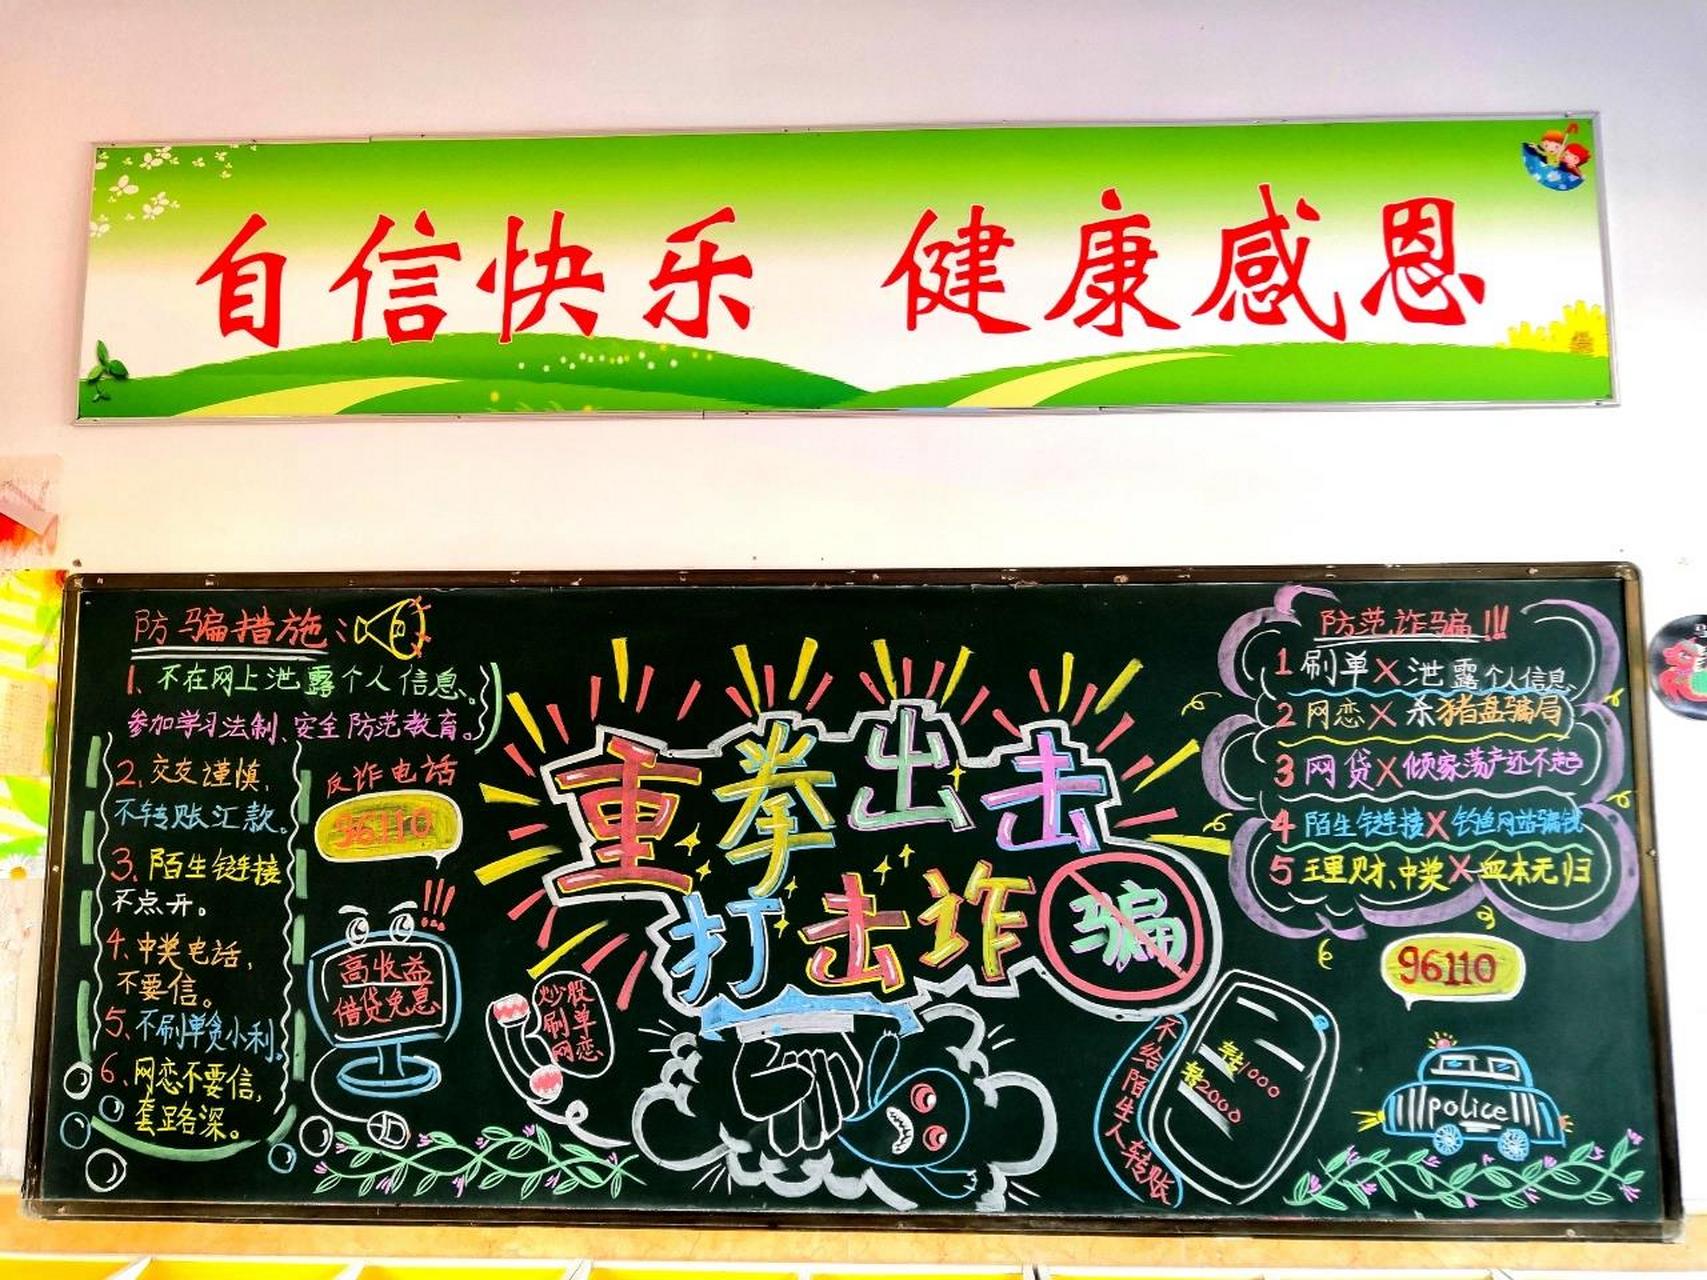 自信快乐 健康感恩
防骗措施:
1、不在网上泄露个人信息、
参加学习法制、安全防范教育。
2、交友谨慎，
不转账汇款。
3、陌生链接
不点开。
4、中奖电话，
不要信。
5、不刷单贪小利。
6、网恋不要信，
套路深。
反诈电话
96110
!!!
高收益
借贷免息
炒股
刷单
网恋
重拳出击
打击诈骗
不给陌生人转账
转1000
转2000
防范诈骗!!!
1 刷单X泄露个人信息、
2 网恋X杀猪盘骗局
3 网贷X倾家荡产还不起
4 陌生链接X钓鱼网站骗钱
5 理财、中奖X血本无归
96110
police